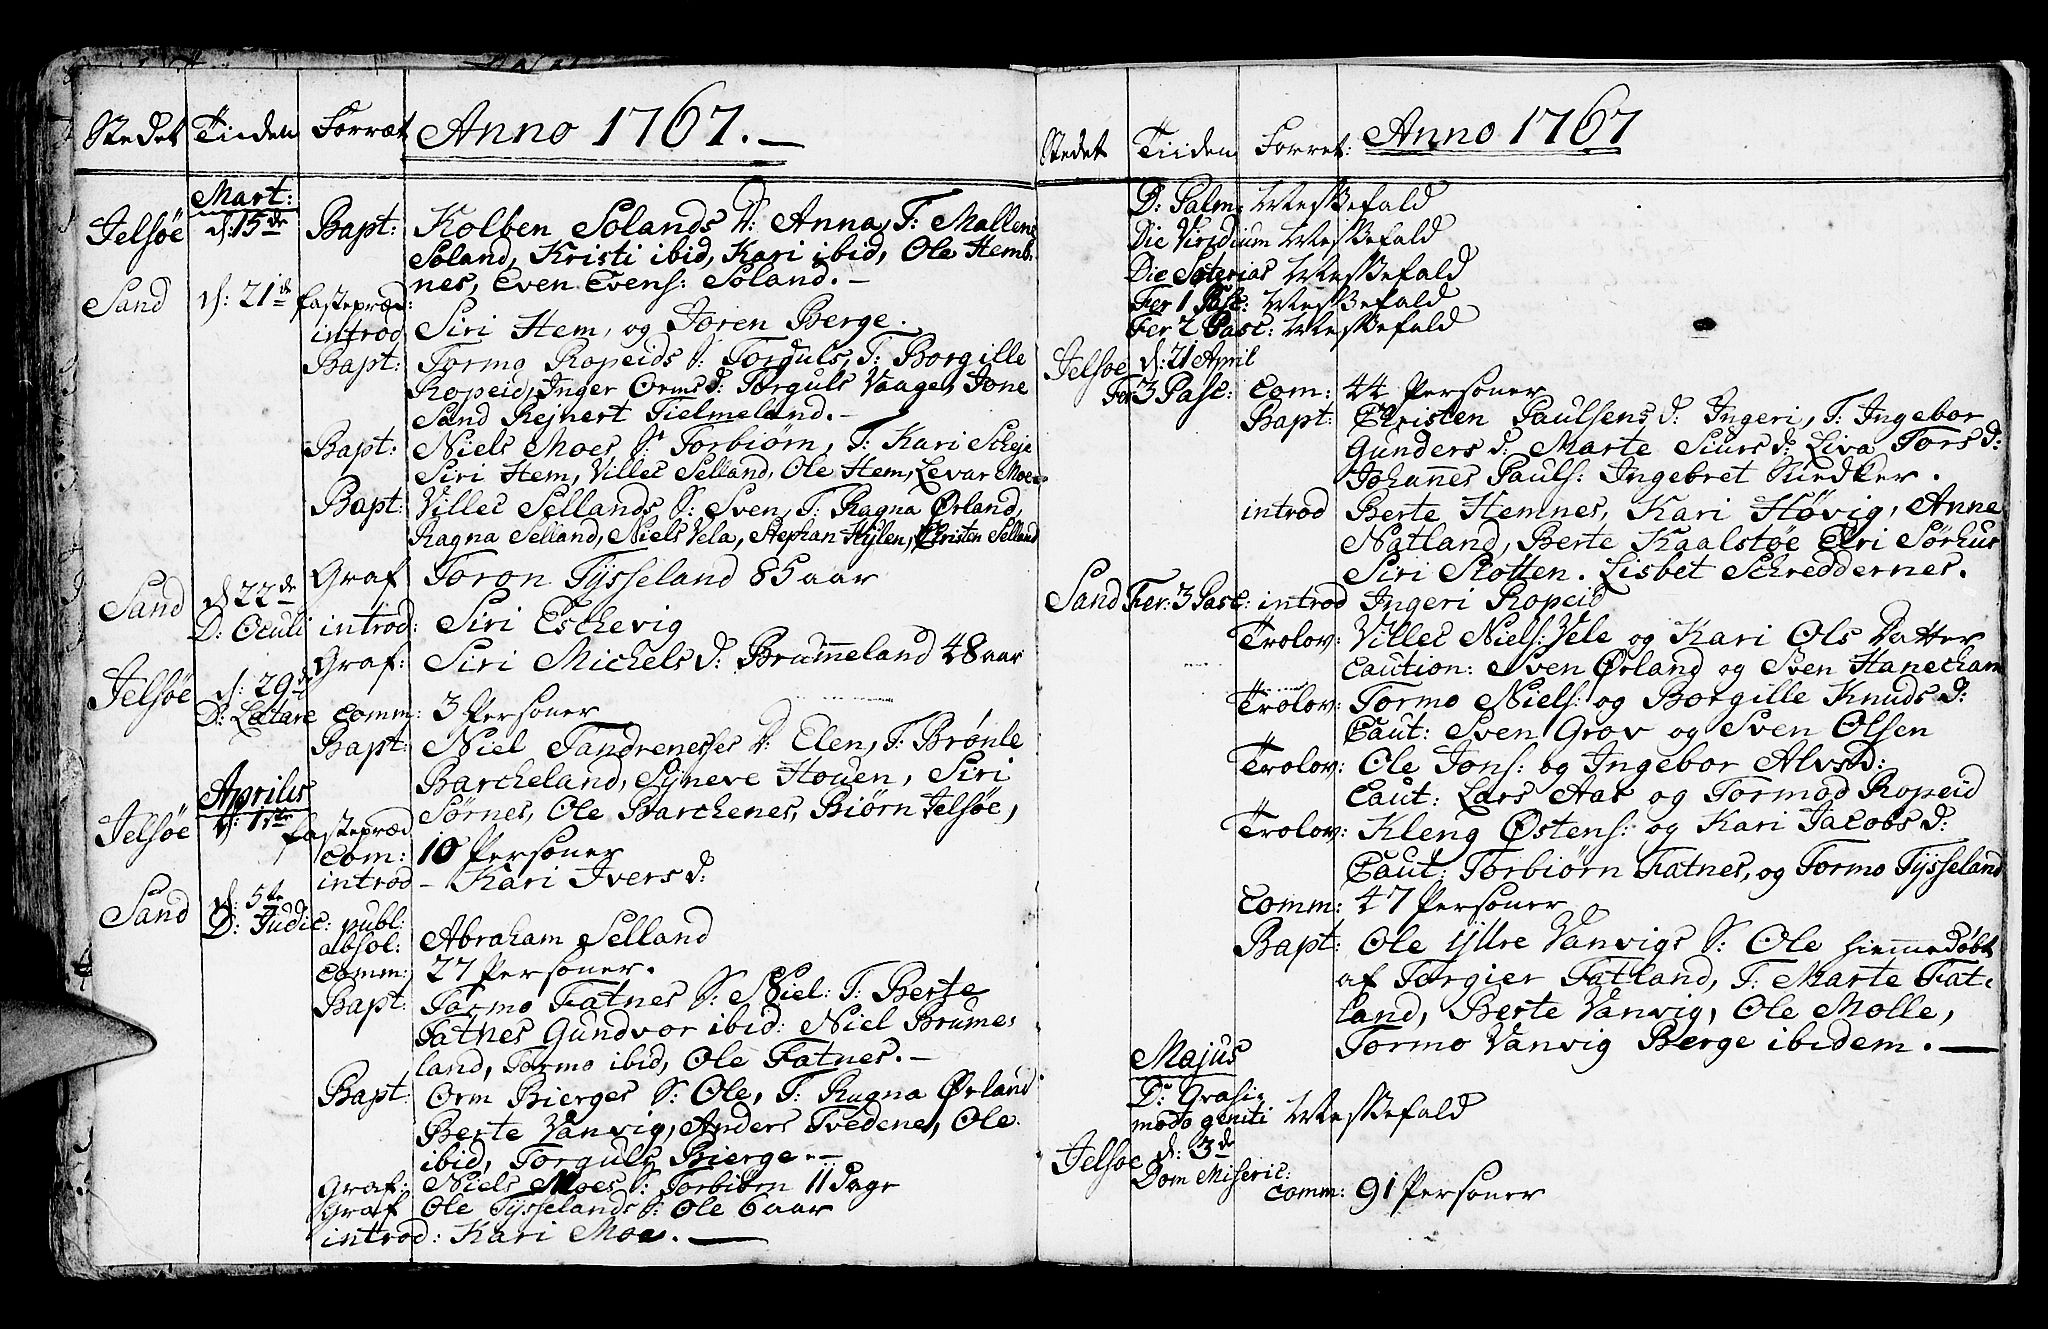 Stedet Tiiden Forræt Anno 1767. –
Mart:
Jelsøe d: 15de Bapt: Kolben Solands D: Anna, F: Mallene
Soland, Kristi ibid, Kari ibid, Ole Hemb-
nes, Even Evens: Soland. –
Sand d: 21de fastepræd:
introd Siri Hem, og Joren Berge.
Bapt: Tormo Ropeids S: Torguls, F: Borgille
Ropeid, Inger Orms d: Torguls Vaage, Jone
Sand Rejnert Tielmeland. –
Bapt: Niels Moes S: Torbiørn, F: Kari Scheje
Siri Hem, Villec Selland, Ole Hem, Levar Moe
Bapt: Villec Sellands S: Sven, F: Ragna Ørland,
Ragna Selland, Niels Vela, Stephan Hylen, Christen Selland
Graf Toron Tysseland 85 aar
Sand d 22de
D: Oculi introd: Siri Eschevig
Graf: Siri Michels d: Brum̅eland 48 aar
Jelsøe d: 29de
D: Lætare comm: 3 Personer
Bapt: Niel Tandrenesses D: Elen, F: Brønle
Barcheland, Syneve Houen, Siri
Sørnes, Ole Barchenes, Biørn Jelsøe,
Aprilis
Jelsøe d: 1ste fastepræd
com: 10 Personer
introd – Kari Ivers d:
Sand d: 5te
D: Judic: publ:
absol: Abraham Selland
comm: 27 Personer.
Bapt: Tormo Fatnes S: Niel: F: Berte
Fatnes Gundvor ibid: Niel Brume-
land, Tormo ibid, Ole Fatnes. –
Bapt: Orm Bierges S: Ole, F: Ragna Ørland
Berte Vanvig, Anders Tvedene, Ole
ibid, Torguls Bierge. –
Graf: Niels Moes S: Torbiørn 11 dage
Graf Ole Tysselands S: Ole 6 aar
introd: Kari Moe. –
Stedet Tiiden Forret: Anno 1767
D: Palm: Messefald
Die Viridium Messefald
Die Soterias Messefald
Fer 1 Pasc: Messefald
Fer 2 Pasc: Messefald
Jelsøe d: 21 April
Fer 3 Pasc: com: 44 Personer
Bapt: Christen Paulsens d: Ingeri, F: Ingebor
Gunders d: Marte Siurs d: Liva Tors d:
Johannes Pauls: Ingebret
introd Berte Hemnes, Kari Høvig, Anne
Natland, Berte Kaalstøe Elri Sørhus
Siri Slotten. Lisbet Schreddernes.
Sand Fer: 3 Pasc: introd Ingeri Ropeid
Trolov: Villec Niels: Vele og Kari Ols Datter
Caution: Sven Ørland og Sven Haneeham
Trolov: Tormo Niels: og Borgille Knuds d:
Caut: Sven Grov og Sven Olsen
Trolov: Ole Jons: og Ingebor Alvs d:
Caut: Lars Aar og Tormod Ropeid
Trolov: Kleng Østens: og Kari Jacobs d:
Caut: Torbiørn Fatnes, og Tormo Tysseland
comm: 47 Personer
Bapt: Ole ytre Vanvigs S: Ole hiem̅edøbt
af Torgier Fatland, F: Marte Fat-
land, Berte Vanvig, Ole Molle,
Tormo Vanvig Berge ibidem. –
Majus
D: Qvasi-
modo geniti Messefald
Jelsøe d: 3de
Dom Miseric:
comm: 91 Personer